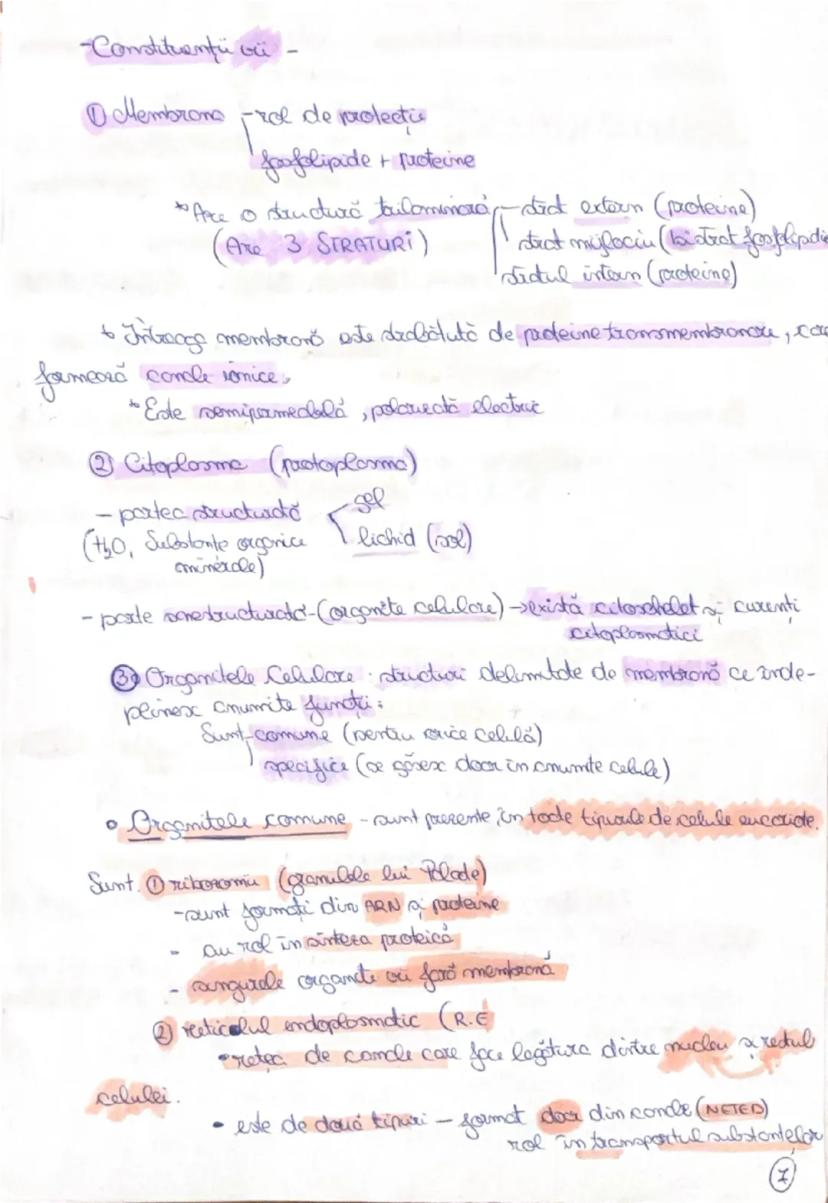 -Constituenții vii -
① Membrana - rol de protecție
fosfolipide + proteine
*Are o structură trilaminară - strat extern (proteine)
(Are 3 STRATURI) strat mijlociu (bistrat fosfolipidic
stratul intern (proteine)
* Întreaga membrană este străbătută de proteine transmembranare, car
formează canale ionice.
*Este semipermeabilă, polarizată electric
② Citoplasma (protoplasma)
- partea structurată gel
(H2O, Substanțe organice lichid (sol)
minerale)
- parte nestructurată - (organite celulare) → există citoschelet și curenți
citoplasmatici
③ Organitele Celulare: structuri delimitate de membrană ce înde-
plinesc anumite funcții:
Sunt comune (pentru orice celulă)
specifice (se găsesc doar în anumite celule)
• Organitele comune - sunt prezente, în toate tipurile de celule eucariote.
Sunt. ① ribozomii (granulele lui Palade)
-sunt formați din ARN și proteine
- au rol în sinteza proteică
- singurele organite vii fără membrană
② reticolul endoplasmatic (R.E
•rețea de canale care face legătura dintre nucleu și restul
celulei.
• este de două tipuri - format doar din canale (NETED)
rol în transportul substanțelor